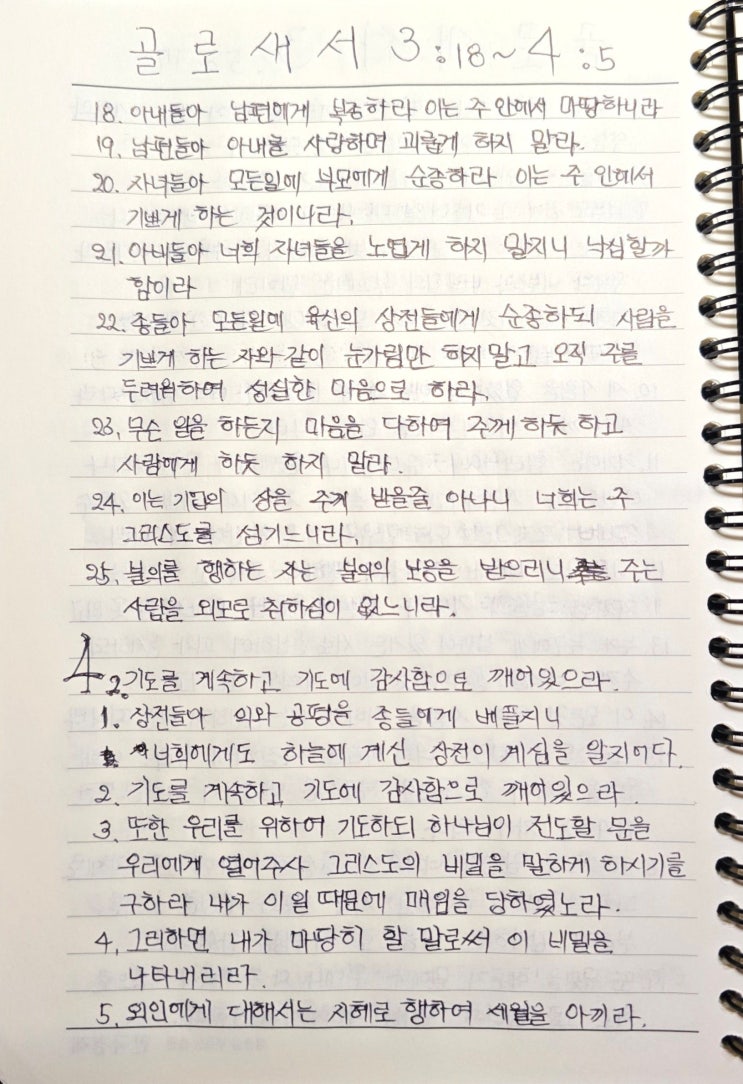 골로새서 3:18~4:5
18. 아내들아 남편에게 복종하라 이는 주 안에서 마땅하니라
19. 남편들아 아내를 사랑하며 괴롭게 하지 말라.
20. 자녀들아 모든일에 부모에게 순종하라 이는 주 안에서
기쁘게 하는 것이니라.
21. 아비들아 너희 자녀들을 노엽게 하지 말지니 낙심할까
함이라
22. 종들아 모든일에 육신의 상전들에게 순종하되 사람을
기쁘게 하는 자와 같이 눈가림만 하지말고 오직 주를
두려워하여 성실한 마음으로 하라.
23. 무슨 일을 하든지 마음을 다하여 주께 하듯 하고
사람에게 하듯 하지 말라.
24. 이는 기업의 상을 주께 받을줄 아나니 너희는 주
그리스도를 섬기느니라.
25. 불의를 행하는 자는 불의의 보응을 받으리니 주는
사람을 외모로 취하심이 없느니라.
4 2. 기도를 계속하고 기도에 감사함으로 깨어있으라.
1. 상전들아 의와 공평을 종들에게 베풀지니
너희에게도 하늘에 계신 상전이 계심을 알지어다.
2. 기도를 계속하고 기도에 감사함으로 깨어있으라.
3. 또한 우리를 위하여 기도하되 하나님이 전도할 문을
우리에게 열어주사 그리스도의 비밀을 말하게 하시기를
구하라 내가 이일 때문에 매임을 당하였노라.
4. 그리하면 내가 마땅히 할 말로써 이 비밀을
나타내리라.
5. 외인에게 대해서는 지혜로 행하여 세월을 아끼라.